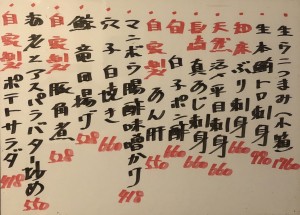 生ウニつまみ(小箱) 1760
生本鮪トロ刺身 980
知床ぶり刺身 660
天然活〆平目刺身 660
長崎真あじ刺身 660
白子ポン酢 660
自家製あん肝 550
マンボウ腸酢味噌がけ 418
穴子白焼き 660
鯨竜田揚げ 528
自家製豚角煮 528
海老とアスパラバター炒め 550
自家製ポテトサラダ 418